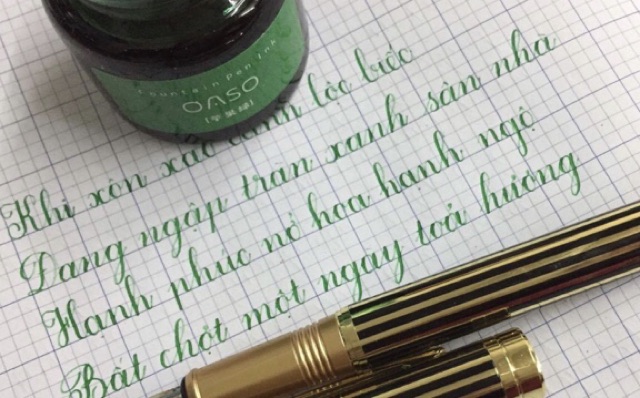 Fountain Pen Ink
OASO
Khi xôn xao cành lộc biếc
Đang ngập tràn xanh sân nhà
Hạnh phúc nở hoa hạnh ngộ
Bất chợt một ngày toả hương